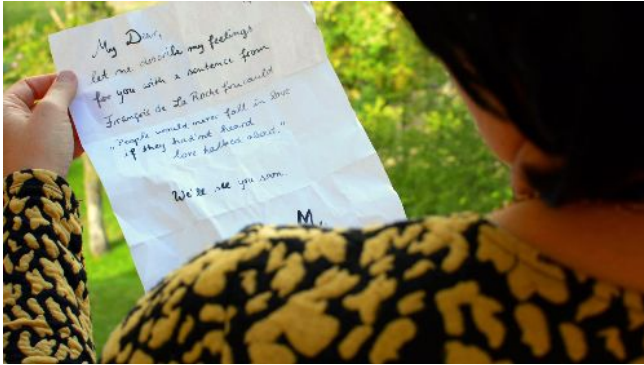 My Dear,
let me describe my feelings
for you with a sentence from
François de La Rochefoucauld
„People would never fall in love
if they hadn't heard
love talked about."
We'll see you soon.
M.